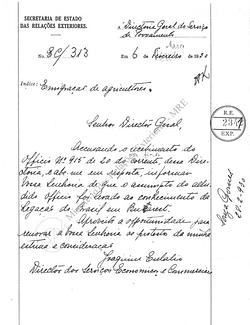 SECRETARIA DE ESTADO
DAS RELAÇÕES EXTERIORES.
Directoria Geral do Serviço
de Povoamento
N. EC/313
Em 6 de Fevereiro de 1920
Indice: Emigração de agricultores.
Senhor Director Geral,
Accusando o recebimento do
officio Nº 915 de 20 do corrente, dessa Dire-
ctoria, cabe-me em resposta, informar
Vossa Senhoria de que o assumpto do allu-
dido officio foi levado ao conhecimento da
Legação do Brasil em Bucarest.
Aproveito a opportunidade para
renovar a Vossa Senhoria os protestos da minha
estima e consideração
Joaquim Eulalio
Director dos Serviços Economicos e Commerciaes
R.E.
EXP.